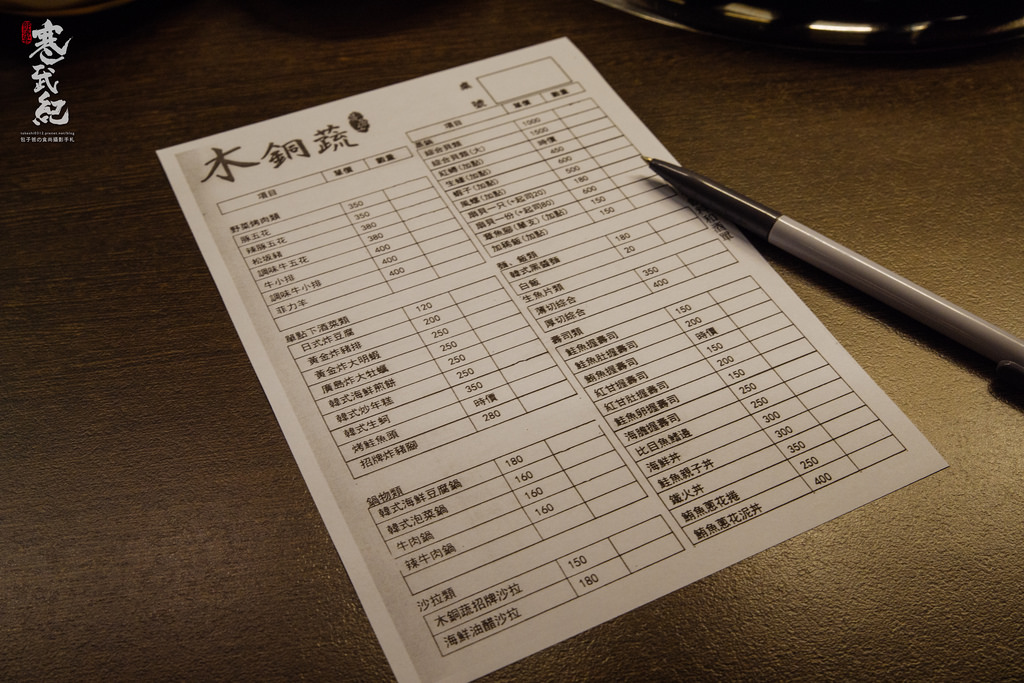 寒武紀
包子爸の食尚攝影手札
木銅蔬
桌
號
項目 單價 數量
野菜烤肉類
豚五花 350
辣豚五花 350
松坂豬 380
調味牛五花 380
牛小排 400
調味牛小排 400
菲力羊 400
單點下酒菜類
日式炸豆腐 120
黃金炸豬排 200
黃金炸大明蝦 250
廣島炸大牡蠣 250
韓式海鮮煎餅 250
韓式炒年糕 250
韓式生蚵 350
烤鮭魚頭 時價
招牌炸豬腳 280
鍋物類
韓式海鮮豆腐鍋 180
韓式泡菜鍋 160
牛肉鍋 160
辣牛肉鍋 160
沙拉類
木銅蔬招牌沙拉 150
海鮮油醋沙拉 180
項目 單價 數量
蒸鍋
綜合貝類 1000
綜合貝類(大) 1500
紅蟳(加點) 時價
生蠔(加點) 450
蝦子(加點) 600
風螺(加點) 500
扇貝一只(+起司20) 180
扇貝一份(+起司80) 600
章魚腳(單支)(加點) 150
加鍋飯(加點) 150
麵、飯類
韓式黑醬麵 180
白飯 20
生魚片類
薄切綜合 350
厚切綜合 400
壽司類
鮭魚握壽司 150
鮭魚肚握壽司 200
鮪魚握壽司 時價
紅甘握壽司 150
紅甘肚握壽司 200
鮭魚卵握壽司 150
海膽握壽司 250
比目魚鰭邊 250
海鮮丼 300
鮭魚親子丼 300
鐵火丼 350
鮪魚蔥花捲 250
鮪魚蔥花泥丼 400